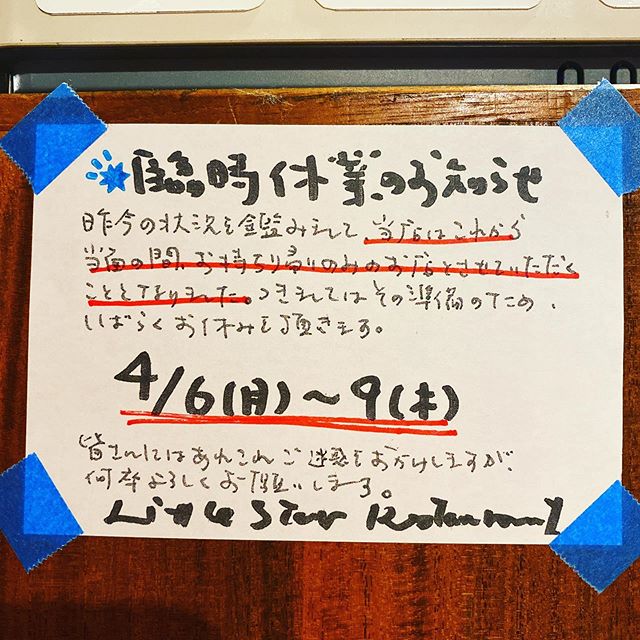 臨時休業のお知らせ
昨今の状況を鑑みまして 当店はこれから
当面の間、お持ち帰りのみのお店とさせていただく
こととなりました。つきましてはその準備のため、
しばらくお休みを頂きます。
4/6(月)〜9(木)
皆さんにはあれこれご迷惑をおかけしますが、
何卒よろしくお願いします。
Little Star Restaurant